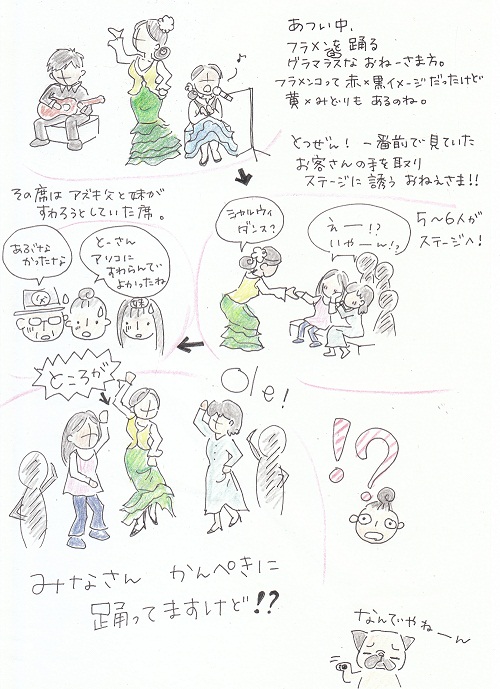 あつい中、
フラメンを踊る
グラマラスな おねーさま方。
フラメンコって 赤×黒イメージだったけど
黄×みどりも あるのね。
♪
とつぜん! 一番前で見ていた
お客さんの手を取り
ステージに誘う おねえさま!!
その席は アズキ父と妹が
すわろうとしていた席。
シャルウィ
ダンス?
えー!?
いやーん!?
5〜6人が
ステージへ!
あぶな
かったな
とーさん
アソコに
すわらんで
よかったね
父
妹
ところが
Ole!
!?
みなさん かんぺきに
踊ってますけど!?
なんでやねーん